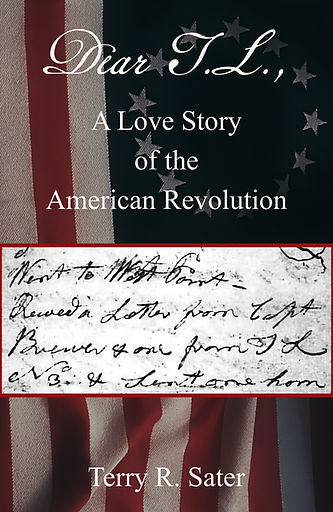 Dear T.L.,
A Love Story
of the
American Revolution
Went to West Point –
Recived a Letter from Capt
Brewer & one from T L
No 3. & Sent one hom
Terry R. Sater